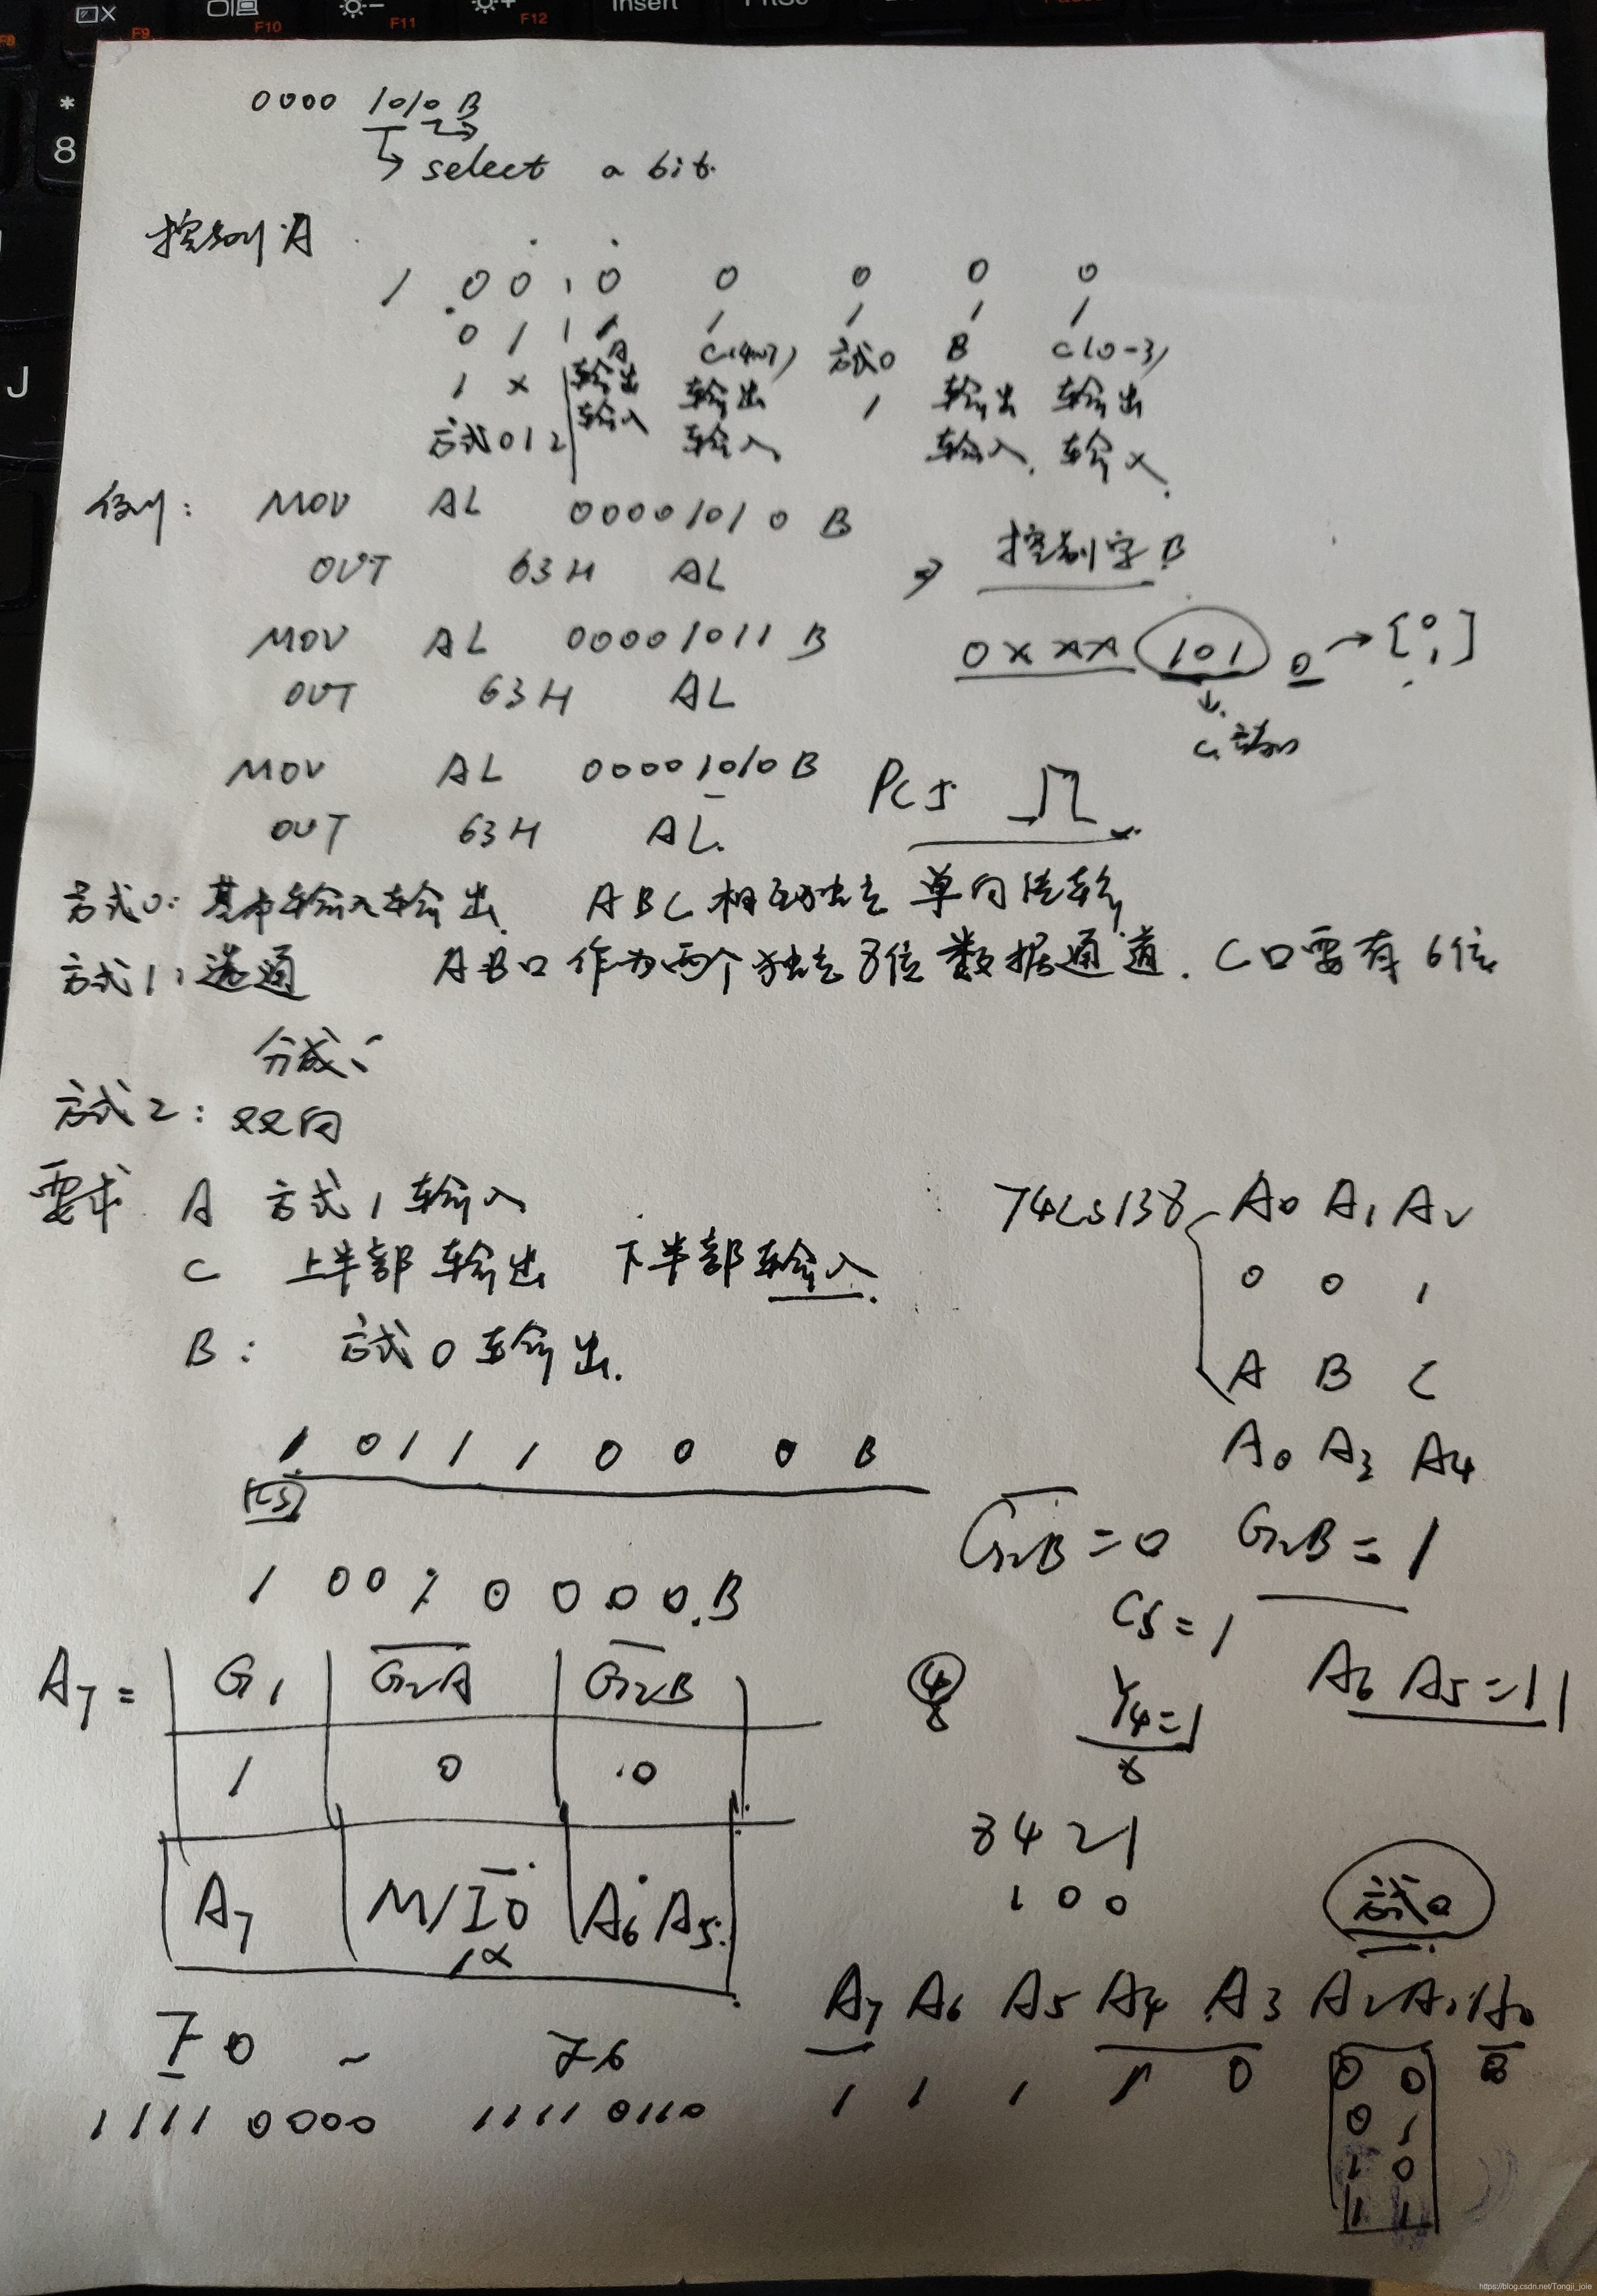 F9 F10 F11 F12 Insert
* 8
J
0000 1010 B
select a bit.
控制 A
1 0 0 1 0 0 0 0 0
0 1 1 1 1 1 1 1
A C(4~7) 方式0 B C(0-3)
1 x 输出 输出 1 输出 输出
方式012 输入 输入 输入 输入
例: MOV AL 00001010 B
OUT 63H AL ⇒ 控制字B
MOV AL 00001011 B 0XXX 101 0 → [0 1]
OUT 63H AL
MOV AL 00001010B PC5
OUT 63H AL.
方式0: 基本输入输出. ABC相互独立 单向传输
方式1: 选通 AB口作为两个独立8位数据通道. C口要有6位
分成:
方式2: 双向
要求 A 方式1输入 74LS138 A0 A1 A2
0 0 1
C 上半部输出 下半部输入.
B: 方式0输出. A B C
A0 A3 A4
1 0 1 1 1 0 0 0 B
G2B=0 G2B=1
1 0 0 1 0 0 0 0.B CS=1
A7= G1 G2A G2B Y4=1 A6 A5=11
1 0 0
8421
100
A7 M/IO A6 A5 方式0
A7 A6 A5 A4 A3 A2 A1 A0
70 ~ 76
1 1 1 1 0 0 0
11110000 11110110
0 1
1 0
1 1
https://blog.csdn.net/Tongji_joie